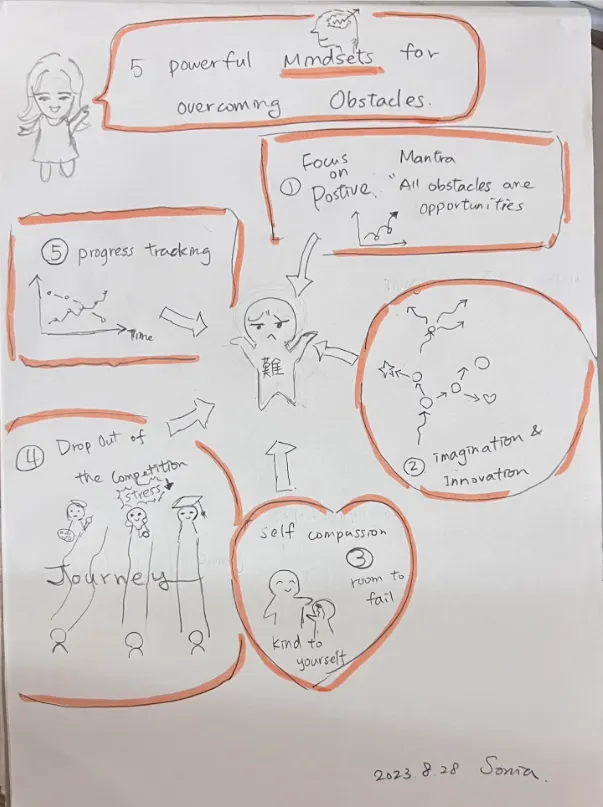 5 powerful Mindsets for
overcoming Obstacles.
① Focus
on
Postive.
Mantra
"All obstacles are
opportunities
⑤ progress tracking
Time
難
② imagination &
Innovation
④ Drop out of
the competition
stress
Journey
self compassion
③
room to
fail
kind to
yourself
2023.8.28 Sonia.